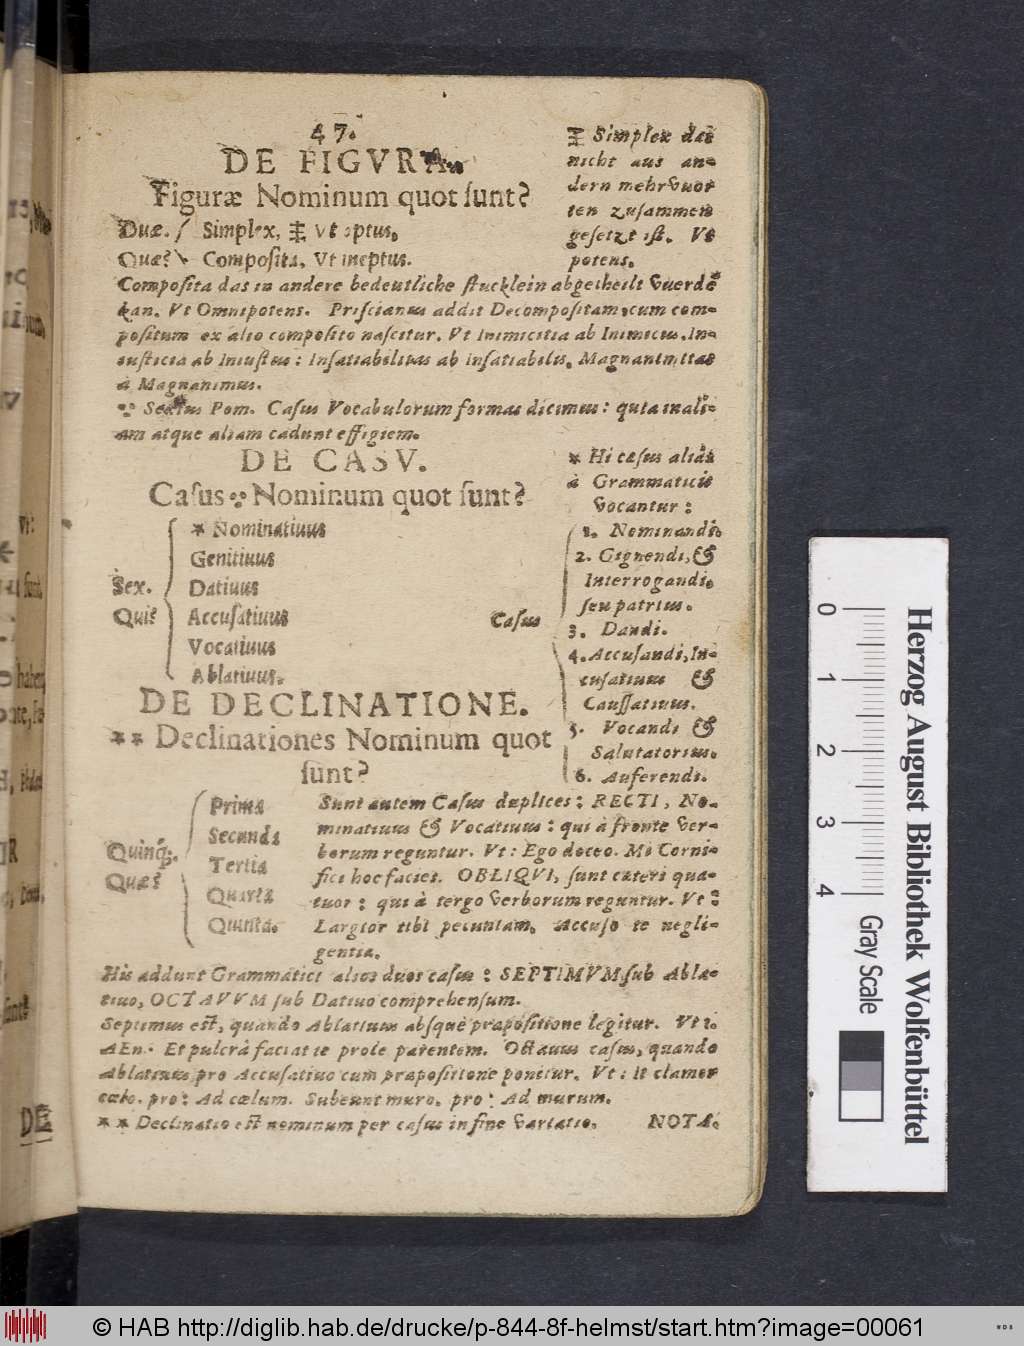 47.
DE FIGVRA.
Figuræ Nominum quot sunt?
Duæ. Simplex, ‡ Vt aptus.
Quæ? Composita, Vt ineptus.
‡ Simplex das
nicht aus an-
dern mehr vuor
ten zusammen
gesetzt ist. Vt
potens.
Composita das in andere bedeutliche stucklein abgetheilt vuerdē
kan. Vt Omnipotens. Priscianus addit Decompositam, cum com-
positum ex alio composito nascitur. Vt Inimicitia ab Inimicus. In-
iusticia ab Iniustus: Insatiabilitas ab insatiabilis. Magnanimitas
à Magnanimus.
Sextus Pom. Casus Vocabulorum formas dicimus: quia in ali-
am atque aliam cadunt effigiem.
DE CASV.
Casus Nominum quot sunt?
Sex.
Qui?
* Nominatiuus
Genitiuus
Datiuus
Accusatiuus
Vocatiuus
Ablatiuus.
* Hi casus alias
à Grammaticis
vocantur:
Casus
1. Nominandi.
2. Gignendi, &
Interrogandi.
seu patrius.
3. Dandi.
4. Accusandi, In-
cusatiuus &
Caussatiuus.
5. Vocandi &
Salutatorius.
6. Auferendi.
DE DECLINATIONE.
** Declinationes Nominum quot
sunt?
Quinq;.
Quæ?
Prima
Secunda
Tertia
Quarta
Quinta.
Sunt autem Casus duplices: RECTI, No-
minatiuus & Vocatiuus: qui à fronte ver-
borum reguntur. Vt: Ego doceo. Mi Corni-
fici hoc facies. OBLIQVI, sunt cæteri qua-
tuor: qui à tergo verborum reguntur. Vt:
Largior tibi pecuniam. Accuso te negli-
gentia.
His addunt Grammatici alios duos casus: SEPTIMVM sub Abla-
tiuo, OCTAVVM sub Datiuo comprehensum.
Septimus est, quando Ablatiuus absque præpositione legitur. Vt 1.
AEn. Et pulcrà faciat te prole parentem. Octauus casus, quando
Ablatiuus pro Accusatiuo cum præpositione ponitur. Vt: It clamor
cælo. pro: Ad cælum. Subeunt muro. pro: Ad murum.
** Declinatio est nominum per casus in fine variatio.
NOTA.
DE
Herzog August Bibliothek Wolfenbüttel
0 1 2 3 4
Gray Scale
© HAB http://diglib.hab.de/drucke/p-844-8f-helmst/start.htm?image=00061